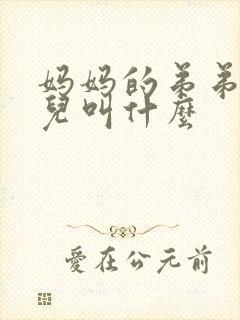 妈妈的弟弟
兒叫什麼
愛在公元前